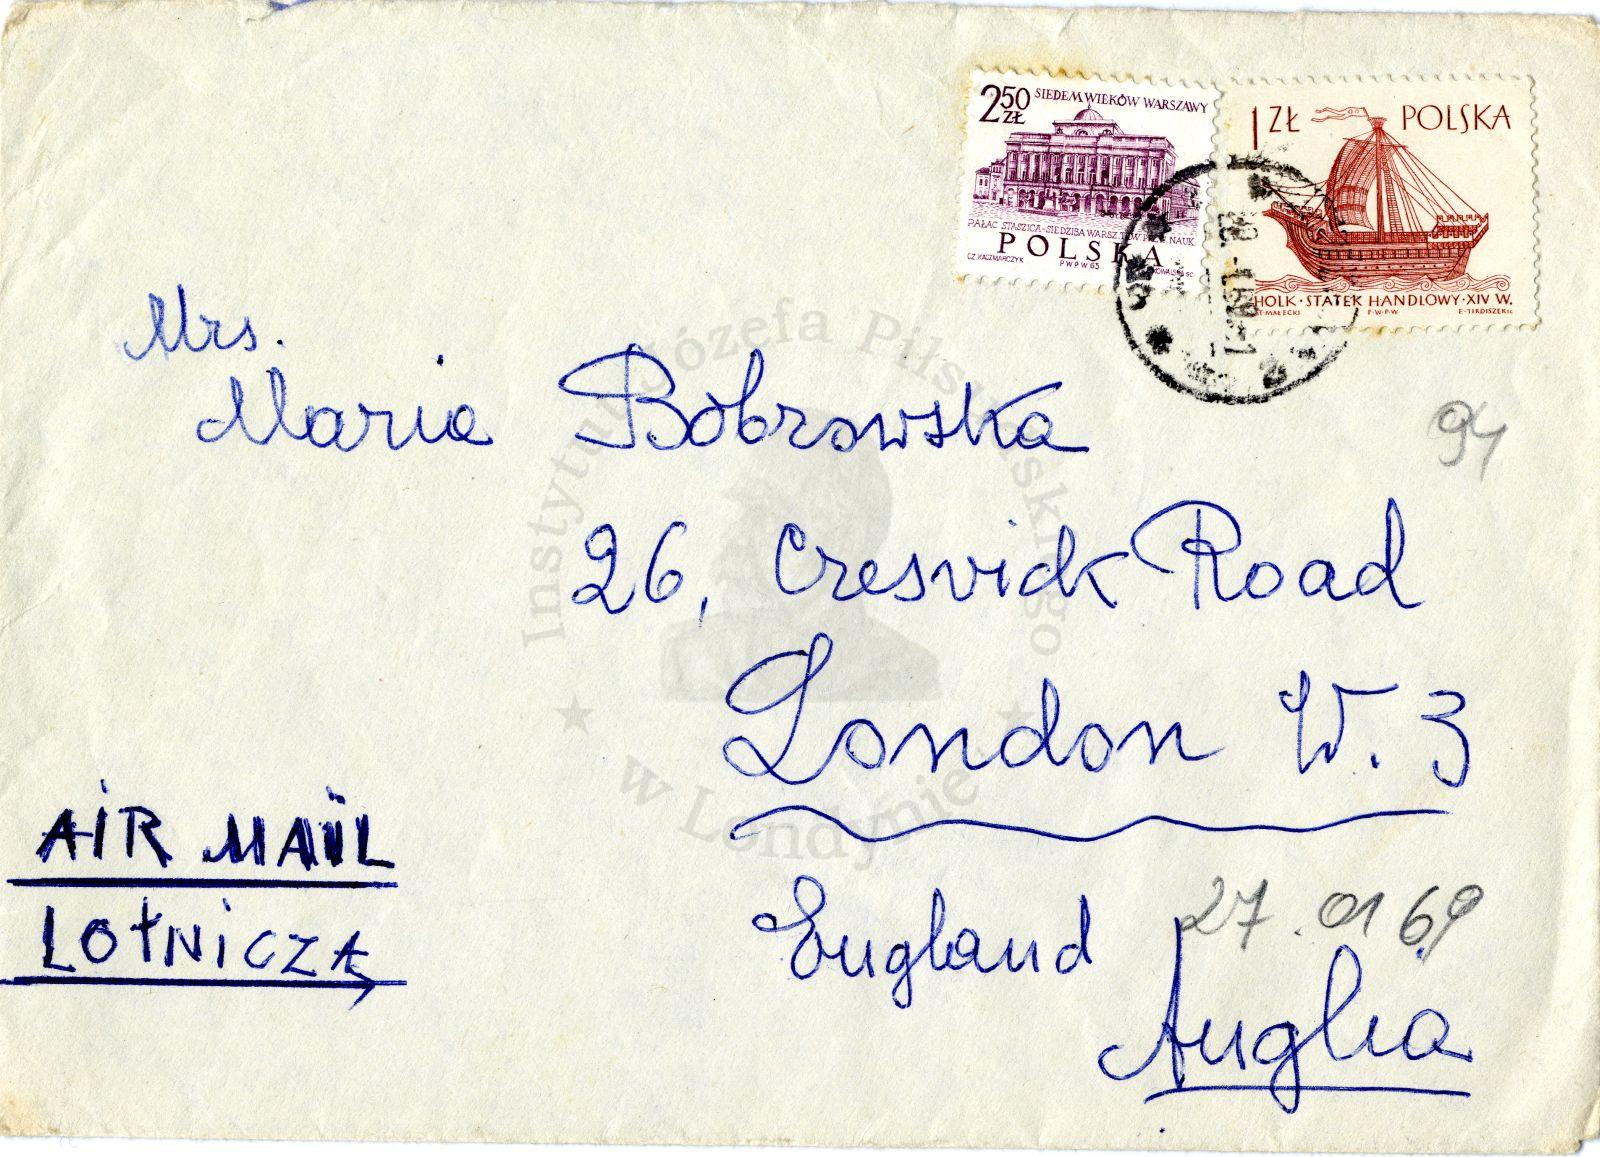 250 ZŁ
SIEDEM WIEKÓW WARSZAWY
PAŁAC STASZICA-SIEDZIBA WARSZ. TOW. PRZ. NAUK
POLSKA
CZ. KACZMARCZYK PWPW 65
1 ZŁ POLSKA
HOLK·STATEK HANDLOWY·XIV W.
T-MAŁECKI P·W·P·W E-TIRDISZEK sc
Mrs.
Maria Bobrowska
94
26, Cresvick Road
London W. 3
AIR MAIL
LOTNICZA
England
27.01 69
Anglia
Instytut Józefa Piłsudskiego
w Londynie